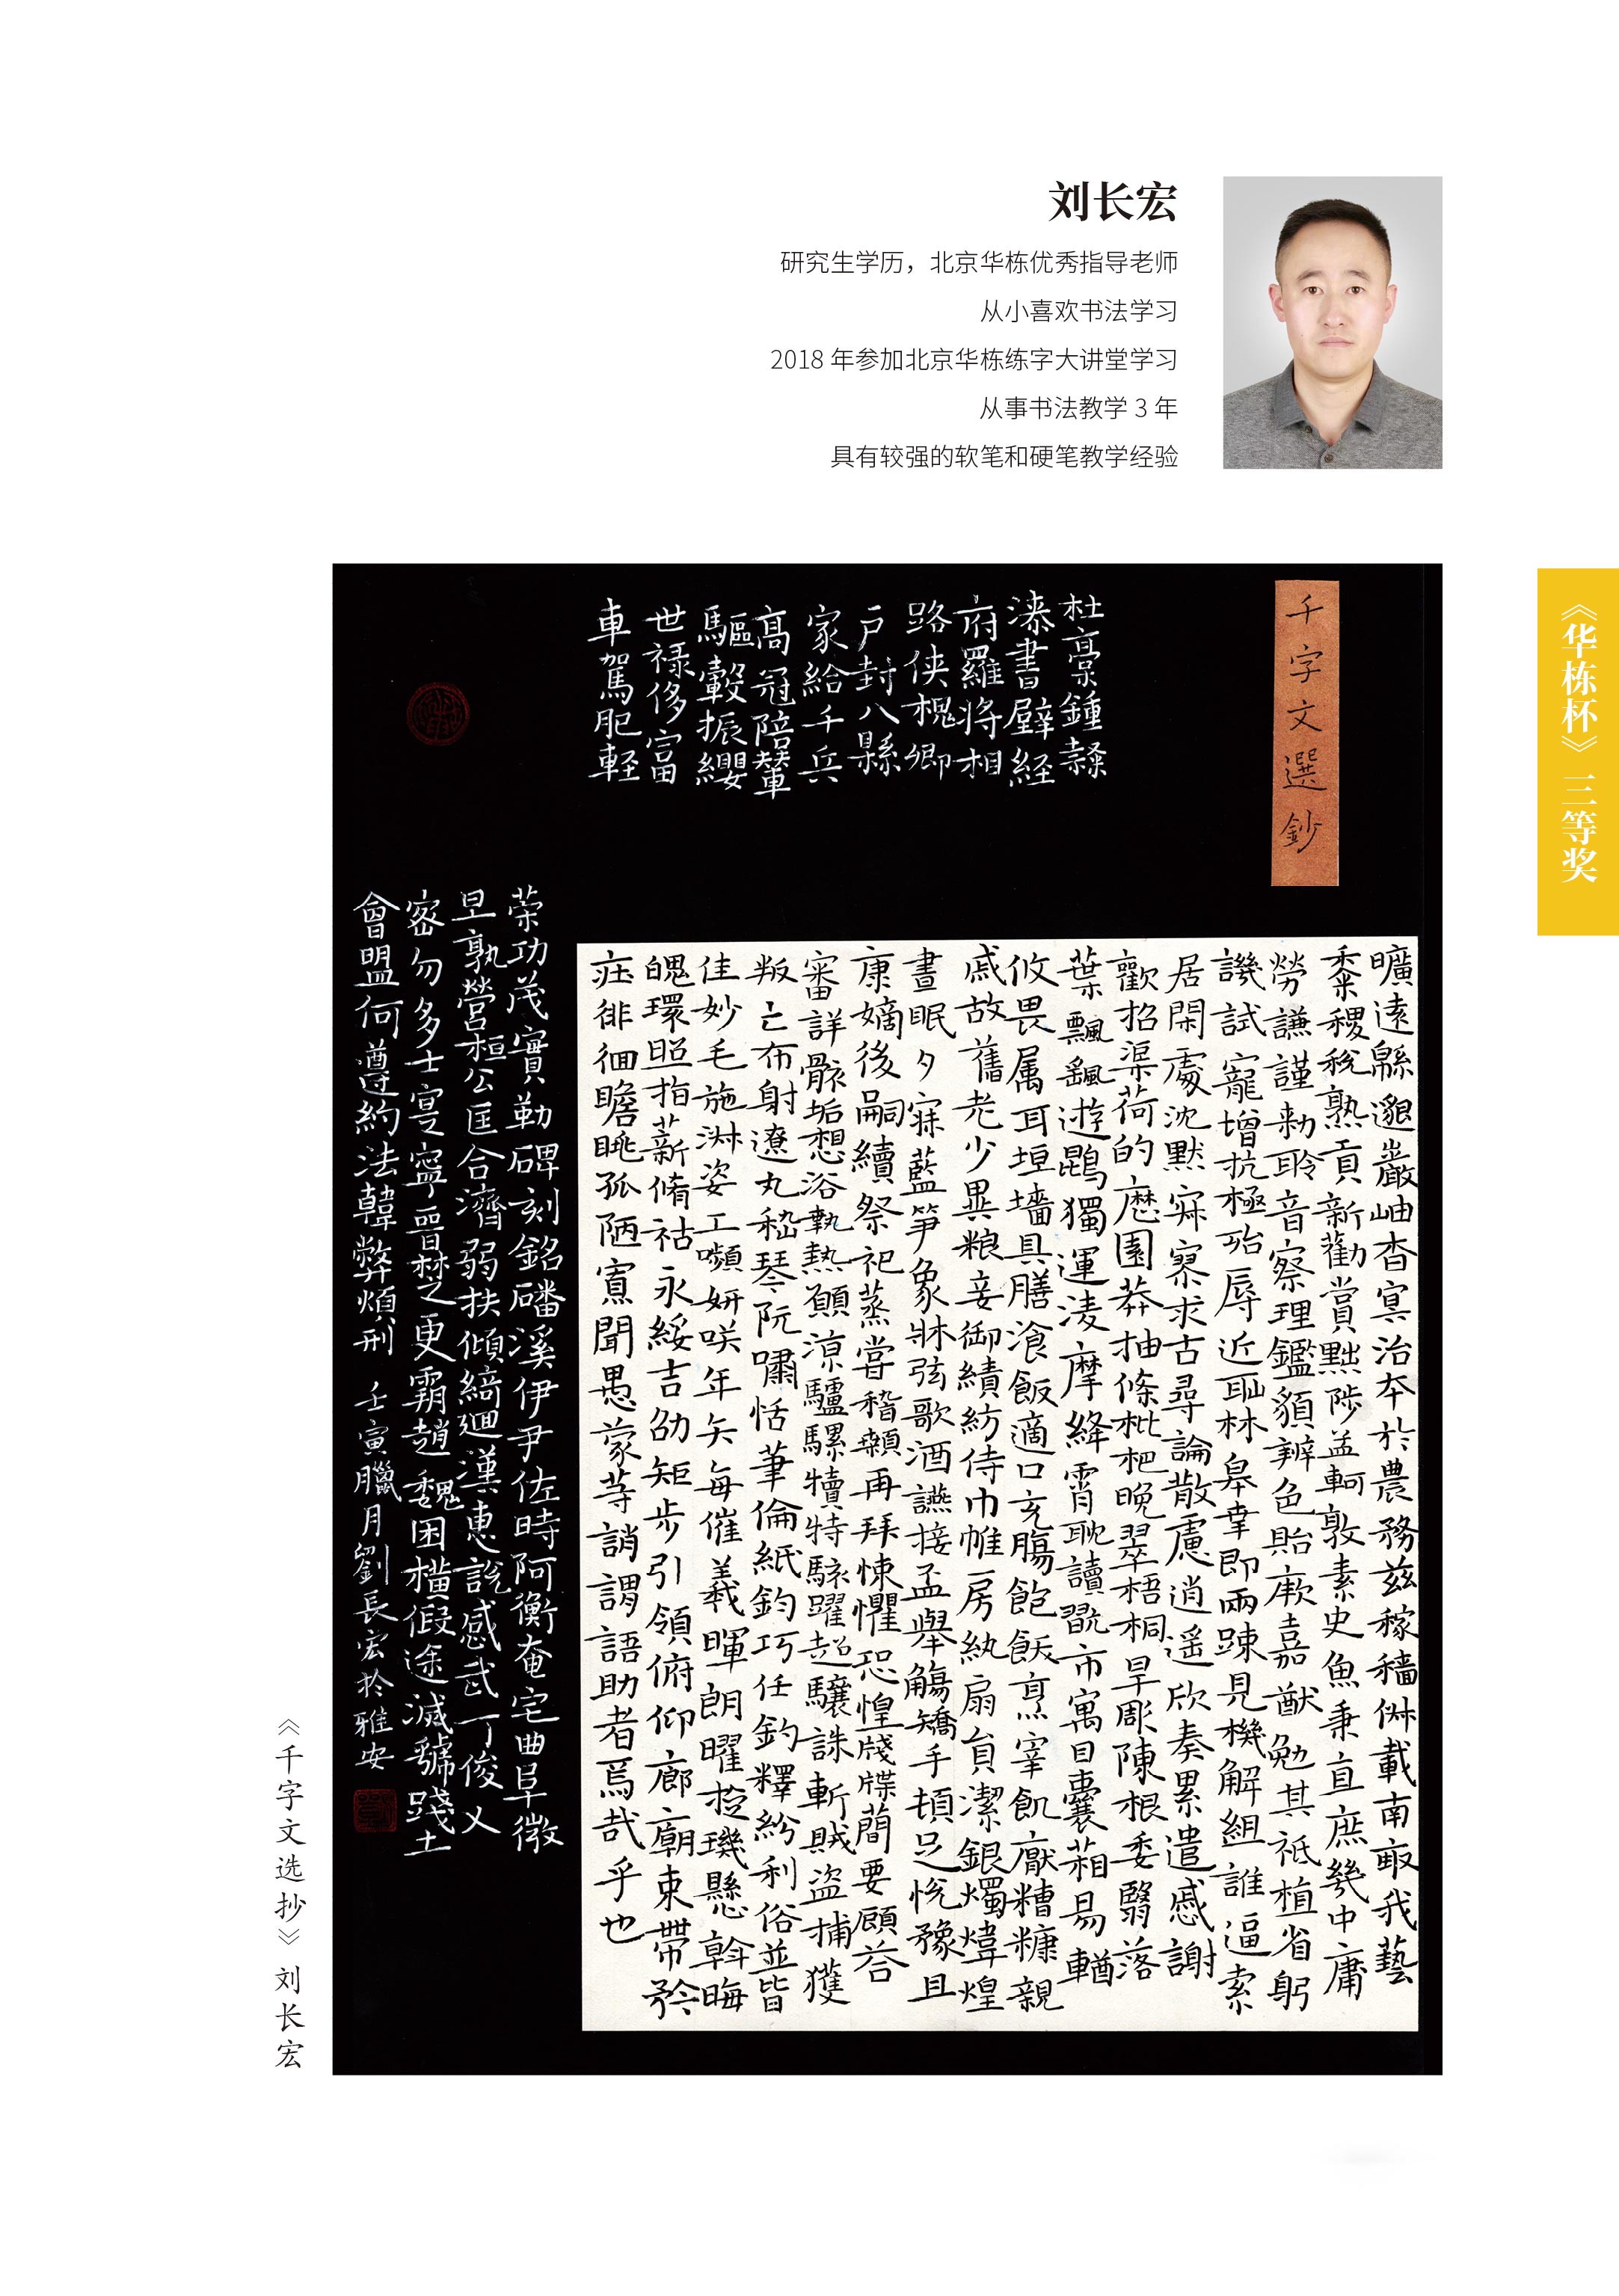 刘长宏
研究生学历，北京华栋优秀指导老师
从小喜欢书法学习
2018 年参加北京华栋练字大讲堂学习
从事书法教学 3 年
具有较强的软笔和硬笔教学经验
《华栋杯》三等奖
千字文選鈔
杜稾鍾隸
漆書壁経
府羅将相
路侠槐卿
戸封八縣
家給千兵
高冠陪輦
驅轂振纓
世禄侈富
車駕肥軽
策功茂實勒碑刻銘磻溪伊尹佐時阿衡奄宅曲阜微
旦孰營桓公匡合濟弱扶傾綺迴漢惠說感武丁俊乂
密勿多士寔寧晉楚更霸趙魏困橫假途滅虢踐土
會盟何遵約法韓弊煩刑 壬寅臘月劉長宏於雅安
曠遠緜邈巖岫杳冥治本於農務兹稼穡俶載南畝我藝
黍稷稅熟貢新勸賞黜陟孟軻敦素史魚秉直庶幾中庸
勞謙謹勑聆音察理鑑貌辨色貽厥嘉猷勉其祗植省躬
譏試寵增抗極殆辱近恥林皋幸即兩踈見機解組誰逼索
居閑處沈默寂寥求古尋論散慮逍遥欣奏累遣慼謝
歡招渠荷的歷園莽抽條枇杷晚翠梧桐早彫陳根委翳落
葉飄颻遊鵾獨運凌摩絳霄耽讀翫市寓目囊箱易輶
攸畏属耳垣墻具膳飡飯適口充腸飽飫烹宰飢厭糟糠親
戚故舊老少異粮妾御績紡侍巾帷房紈扇員潔銀燭煒煌
晝眠夕寐藍笋象牀弦歌酒讌接盃舉觴矯手頓足悅豫且
康嫡後嗣續祭祀蒸嘗稽顙再拜悚懼恐惶牋牒簡要顧荅
審詳骸垢想浴執熱願涼驢騾犢特駭躍超驤誅斬賊盜捕獲
叛亡布射遼丸嵇琴阮嘯恬筆倫紙鈞巧任釣釋紛利俗並皆
佳妙毛施淑姿工嚬妍咲年矢每催羲暉朗曜琁璣懸斡晦
魄環照指薪脩祜永綏吉劭矩步引領俯仰廊廟束帶矜
莊徘徊瞻眺孤陋寡聞愚蒙等誚謂語助者焉哉乎也
《千字文选抄》刘长宏